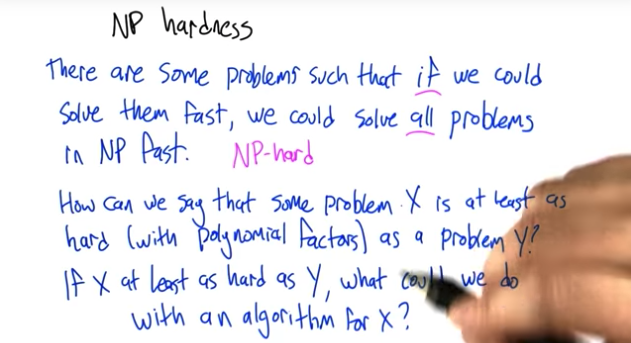 NP hardness
There are some problems such that if we could
solve them fast, we could solve all problems
in NP fast. NP-hard
How can we say that some problem X is at least as
hard (with polynomial factors) as a problem Y?
If X at least as hard as Y, what could we do
with an algorithm for X?